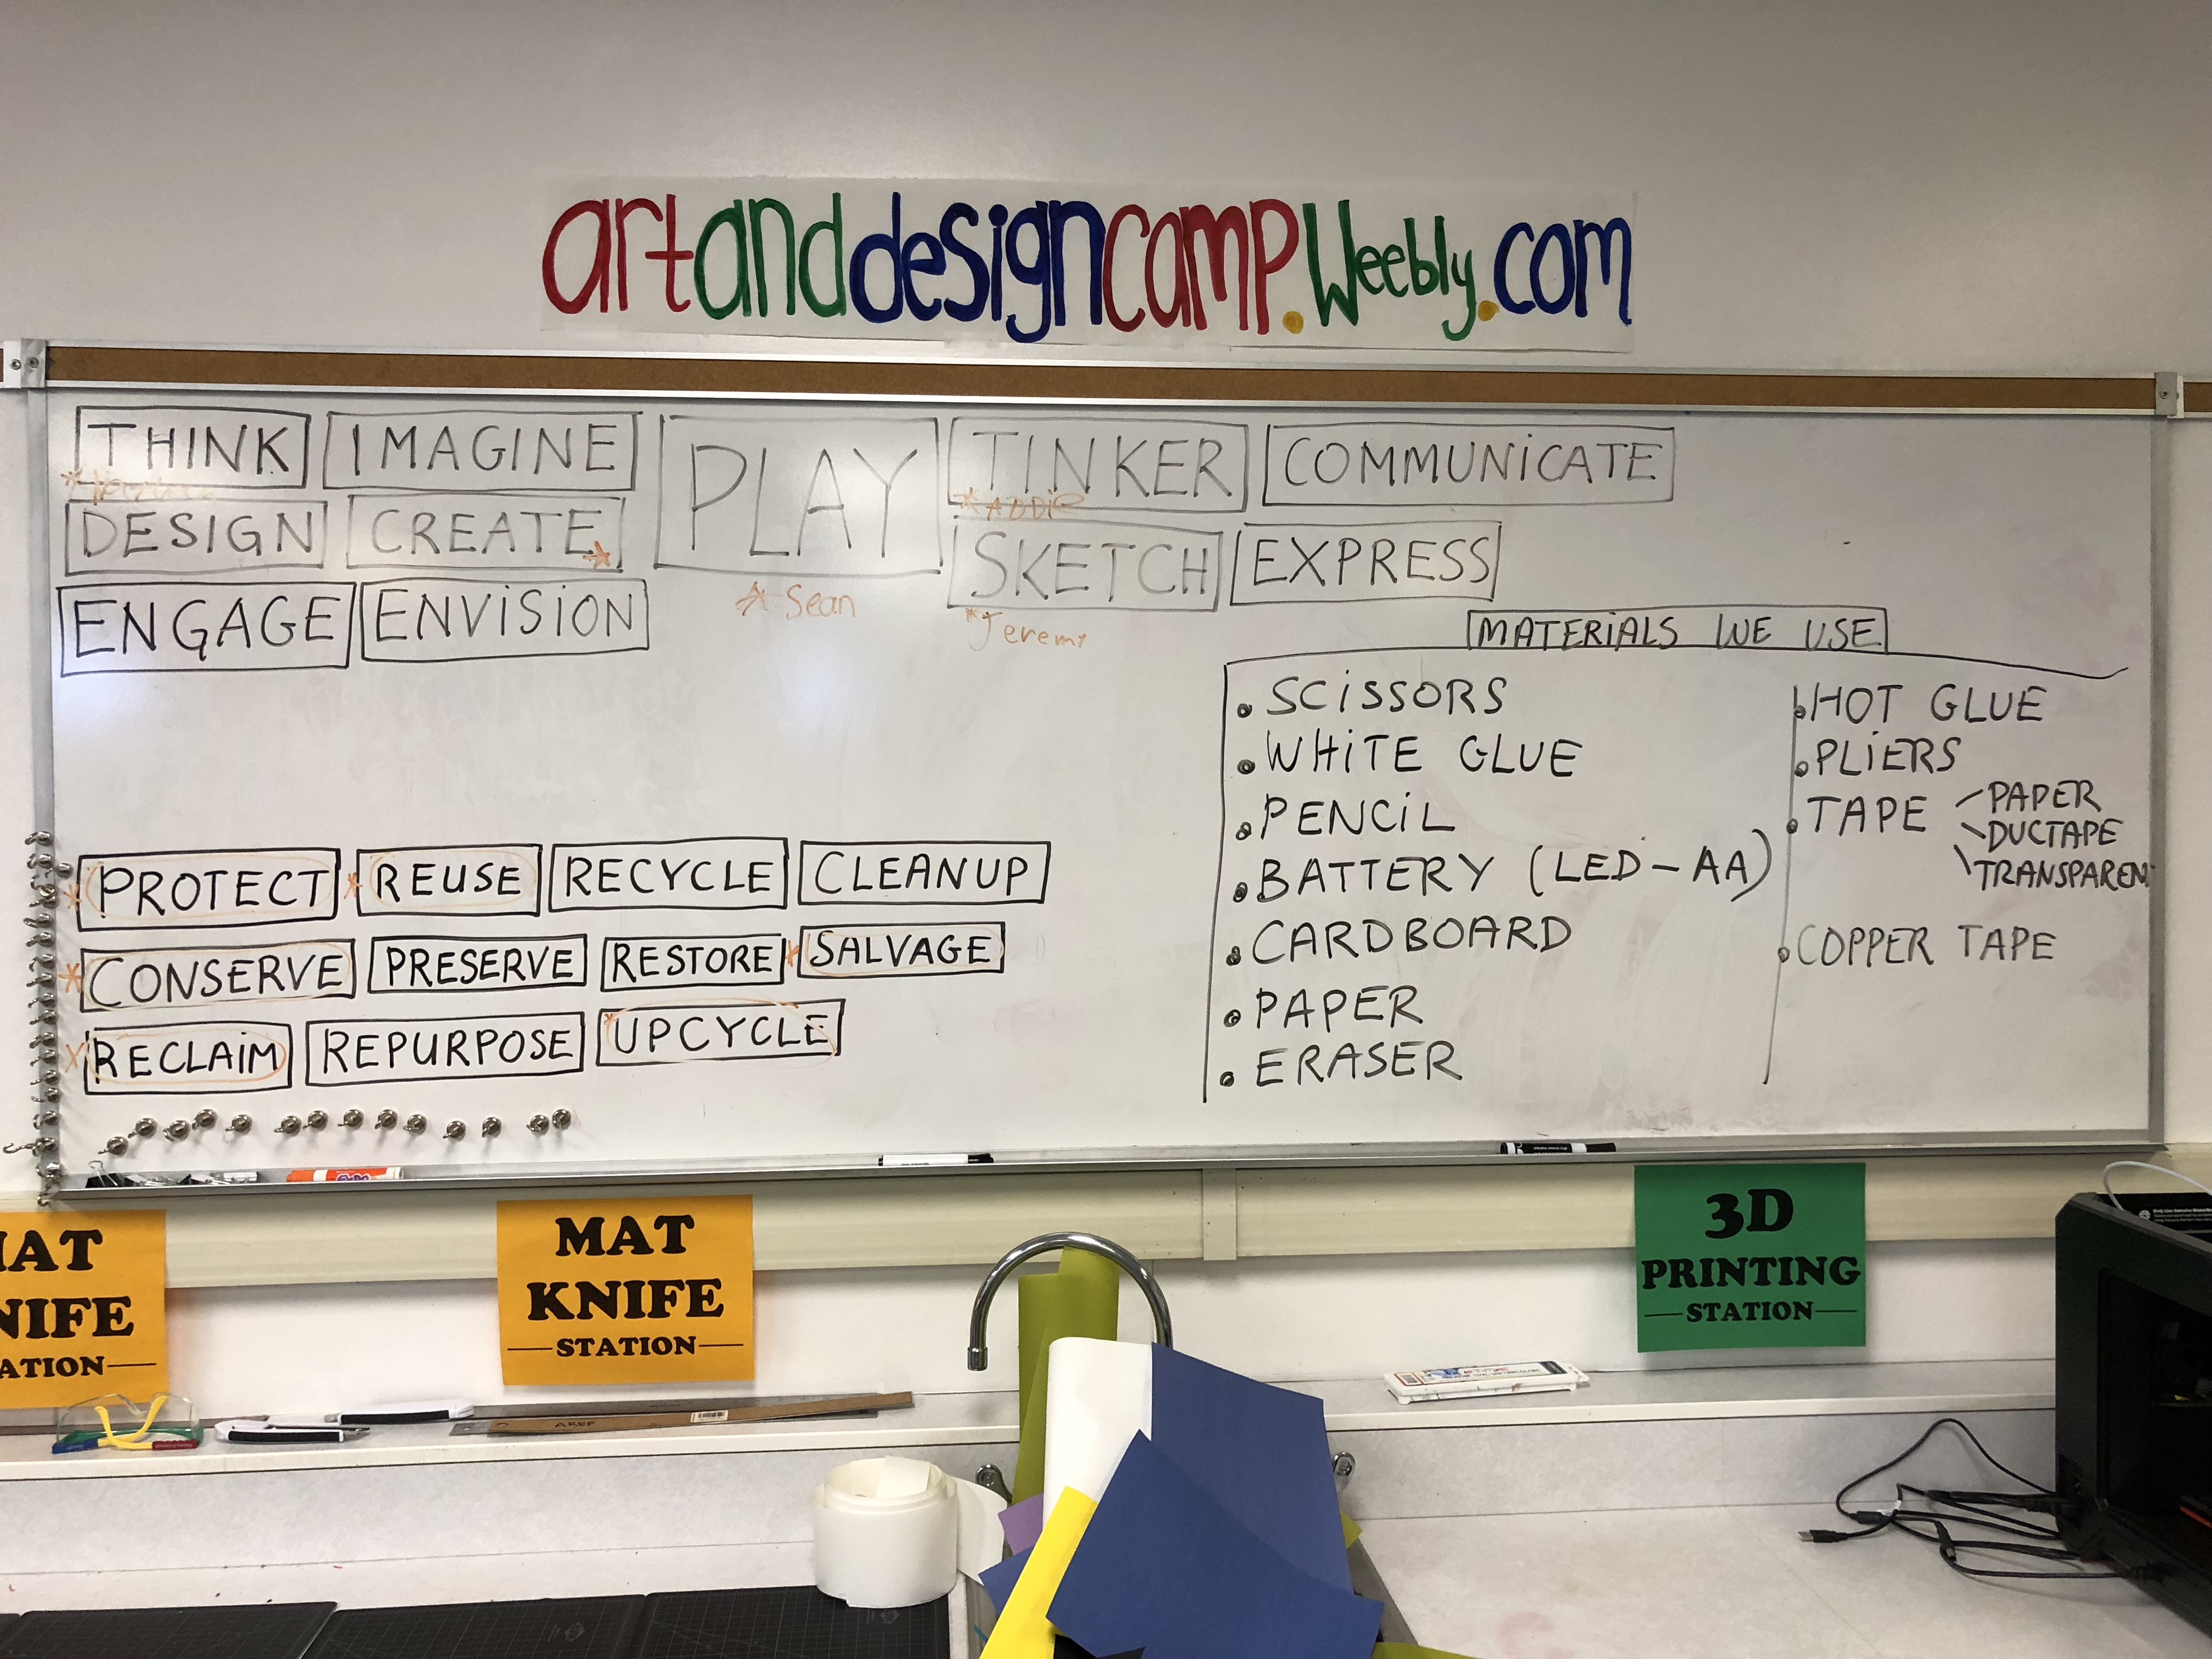 artanddesigncamp.Weebly.com
THINK IMAGINE PLAY TINKER COMMUNICATE
DESIGN CREATE SKETCH EXPRESS
ENGAGE ENVISION
ADDIE
Sean
Jeremy
MATERIALS WE USE
SCISSORS
WHITE GLUE
PENCIL
BATTERY (LED-AA)
CARDBOARD
PAPER
ERASER
HOT GLUE
PLIERS
TAPE PAPER
DUCTAPE
TRANSPAREN
COPPER TAPE
PROTECT REUSE RECYCLE CLEANUP
CONSERVE PRESERVE RESTORE SALVAGE
RECLAIM REPURPOSE UPCYCLE
MAT
KNIFE
STATION
MAT
KNIFE
STATION
3D
PRINTING
STATION